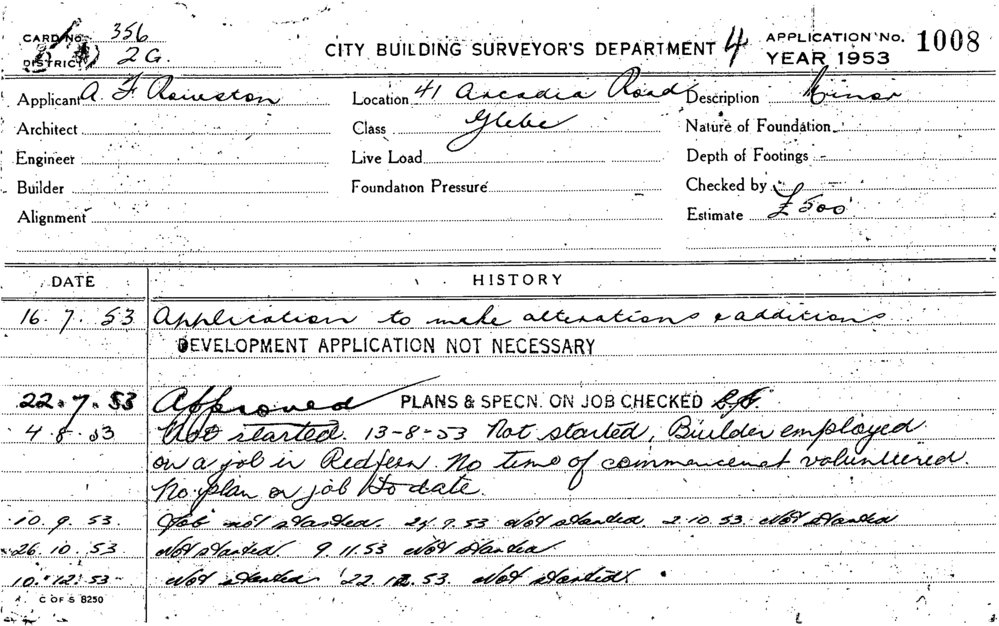 CARD No. 356
DISTRICT 2G.
CITY BUILDING SURVEYOR'S DEPARTMENT 4
APPLICATION No. 1008
YEAR 1953
Applicant A F Rowston Location 41 Arcadia Road Description Minor
Architect Class Glebe Nature of Foundation
Engineer Live Load Depth of Footings
Builder Foundation Pressure Checked by
Alignment Estimate £500
DATE HISTORY
16.7.53 Application to make alterations & additions
DEVELOPMENT APPLICATION NOT NECESSARY
22.7.53 Approved PLANS & SPECN. ON JOB CHECKED
4.8.53 Not started. 13-8-53 Not started, Builder employed
on a job in Redfern. No time of commencement volunteered.
No plan on job to date.
10.9.53. Job not started. 24.9.53 Not started. 2.10.53. Not started
26.10.53. Not started 9.11.53 Not started.
10.12.53 Not started. 22.12.53. Not started.
C OF S 8250